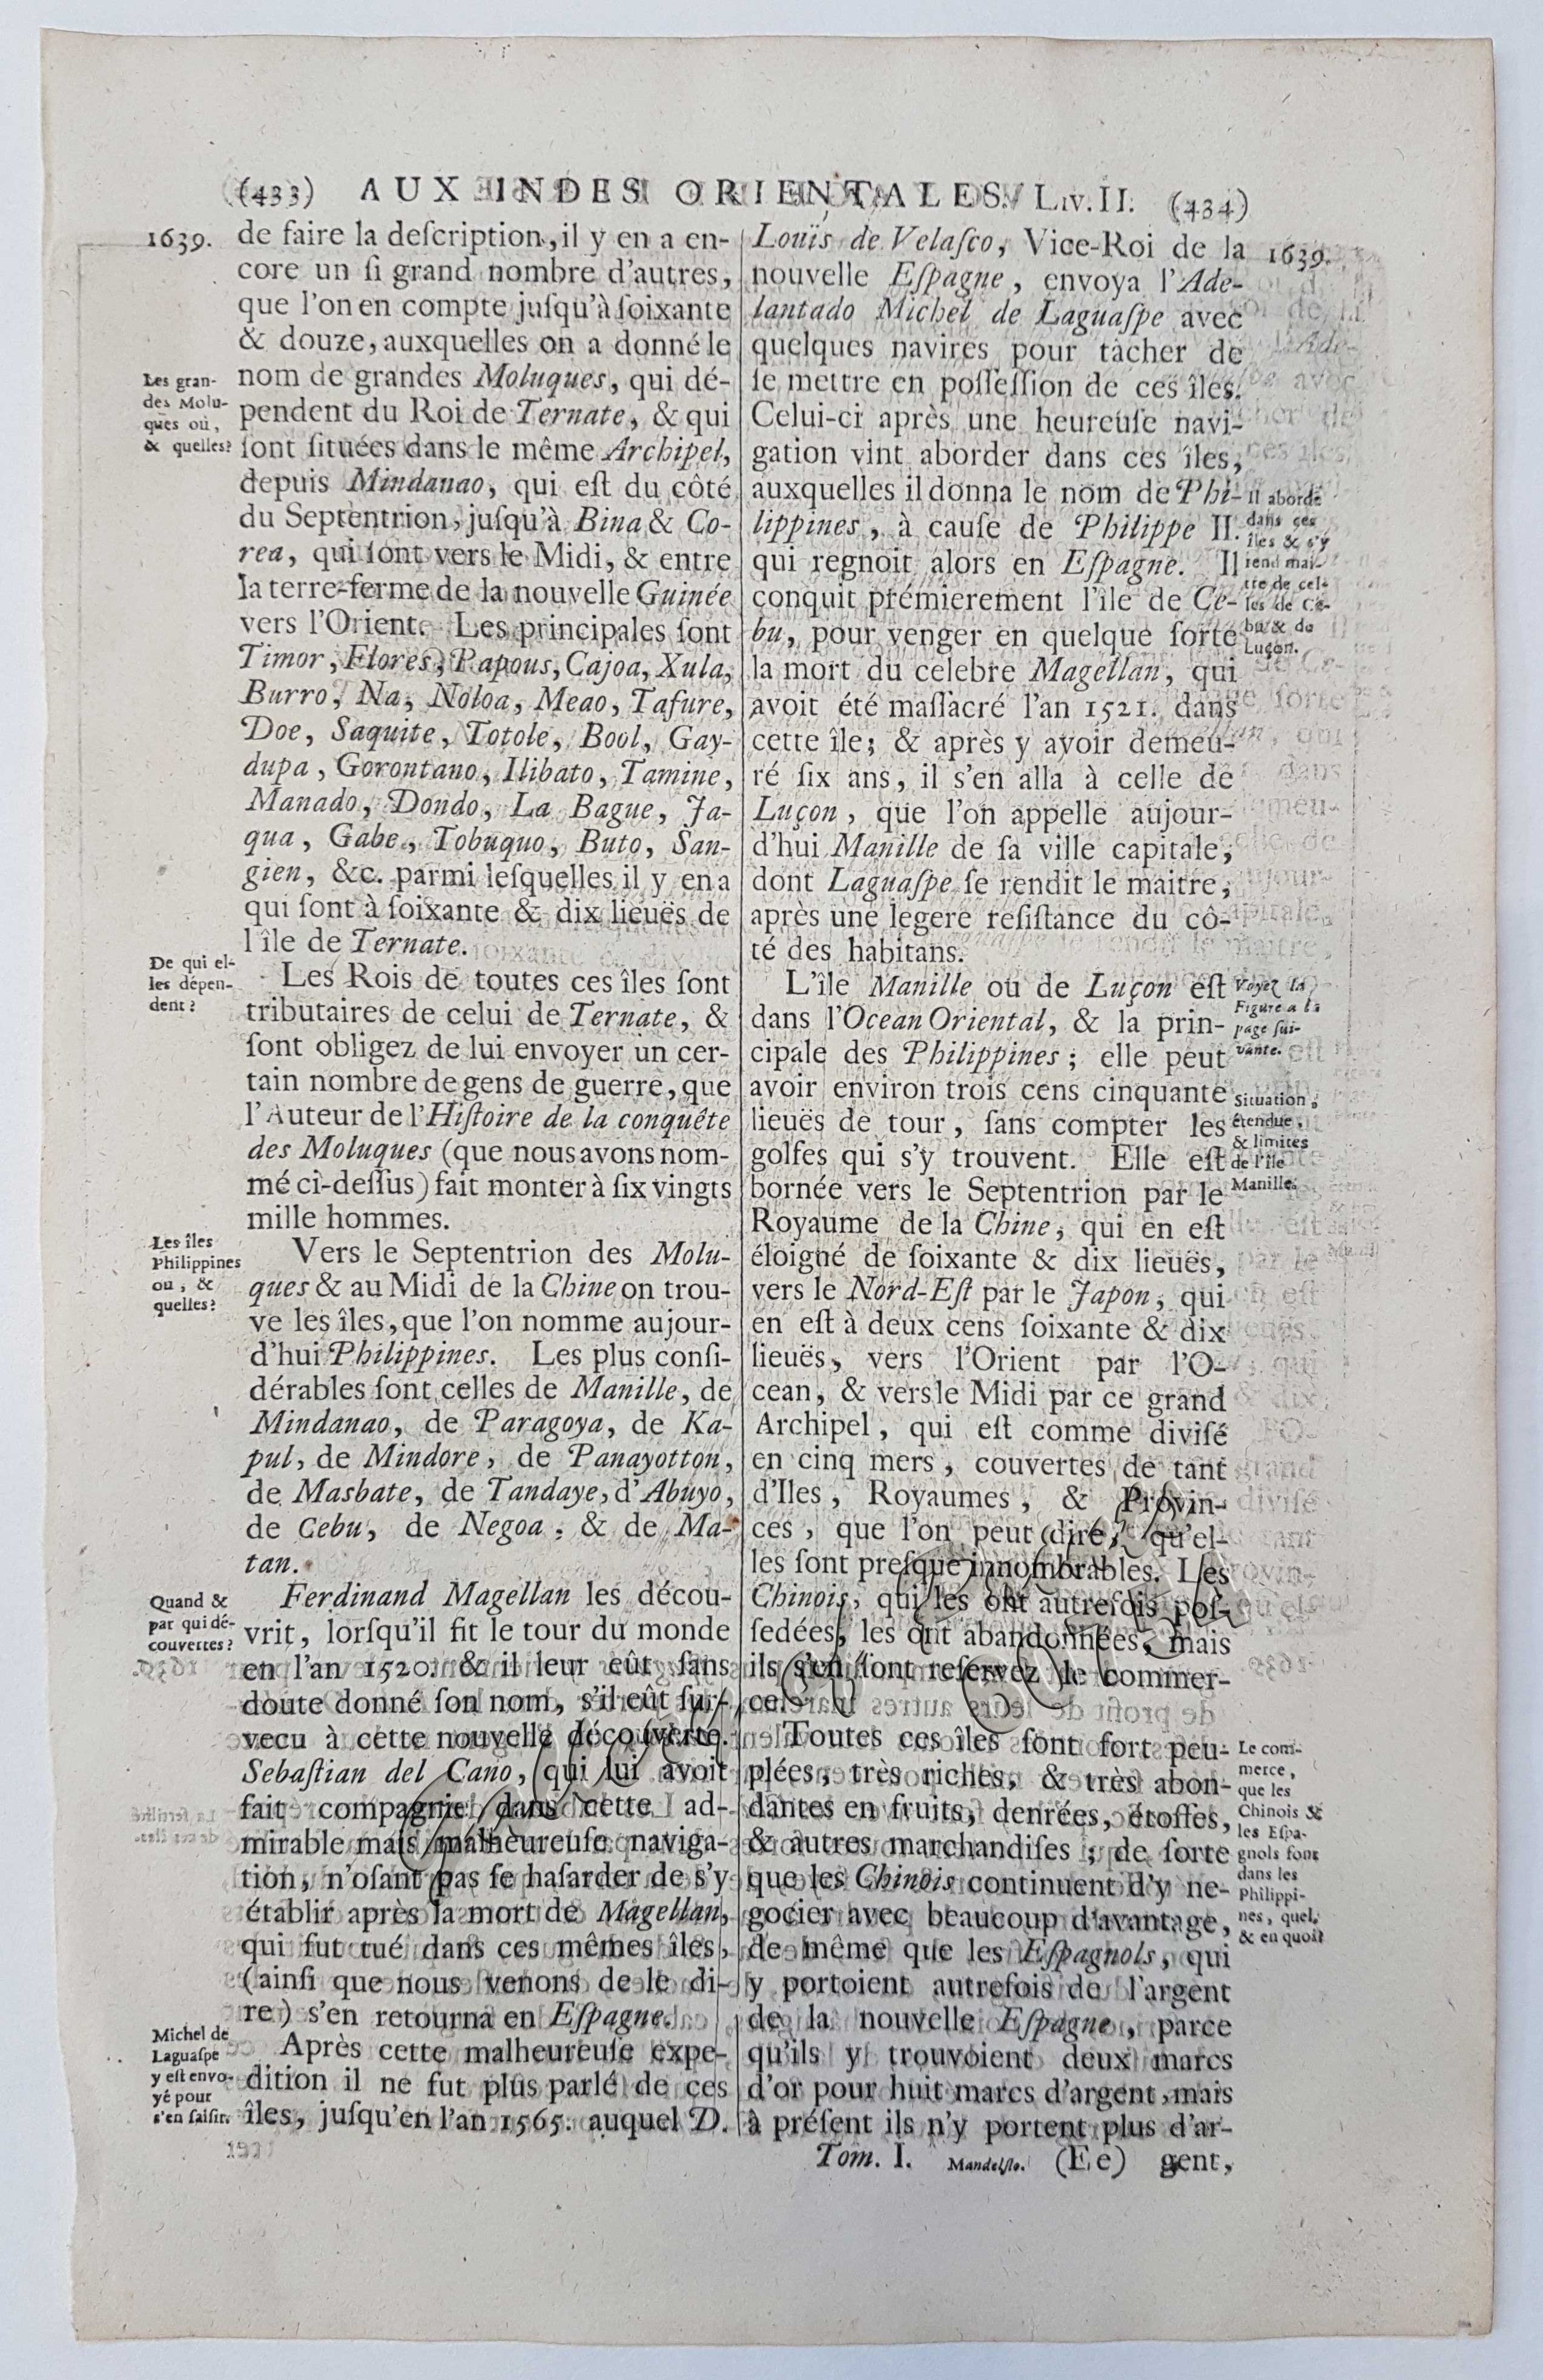 (433) AUX INDES ORIENTALES. Liv. II. (434)
1639.
de faire la deſcription, il y en a en-
core un ſi grand nombre d'autres,
que l'on en compte juſqu'à ſoixante
& douze, auxquelles on a donné le
nom de grandes Moluques, qui dé-
pendent du Roi de Ternate, & qui
ſont ſituées dans le même Archipel,
depuis Mindanao, qui eſt du côté
du Septentrion, juſqu'à Bina & Co-
rea, qui ſont vers le Midi, & entre
la terre-ferme de la nouvelle Guinée
vers l'Orient. Les principales ſont
Timor, Flores, Papous, Cajoa, Xula,
Burro, Na, Noloa, Meao, Tafure,
Doe, Saquite, Totole, Bool, Gay-
dupa, Gorontano, Ilibato, Tamine,
Manado, Dondo, La Bague, Ja-
qua, Gabe, Tobuquo, Buto, San-
gien, &c. parmi leſquelles il y en a
qui ſont à ſoixante & dix lieuës de
l'île de Ternate.
Les Rois de toutes ces îles ſont
tributaires de celui de Ternate, &
ſont obligez de lui envoyer un cer-
tain nombre de gens de guerre, que
l'Auteur de l'Hiſtoire de la conquête
des Moluques (que nous avons nom-
mé ci-deſſus) fait monter à ſix vingts
mille hommes.
Vers le Septentrion des Molu-
ques & au Midi de la Chine on trou-
ve les îles, que l'on nomme aujour-
d'hui Philippines. Les plus conſi-
dérables ſont celles de Manille, de
Mindanao, de Paragoya, de Ka-
pul, de Mindore, de Panayotton,
de Masbate, de Tandaye, d'Abuyo,
de Cebu, de Negoa, & de Ma-
tan.
Ferdinand Magellan les décou-
vrit, lorſqu'il fit le tour du monde
en l'an 1520. & il leur eût ſans
doute donné ſon nom, s'il eût ſur-
vecu à cette nouvelle découverte.
Sebaſtian del Cano, qui lui avoit
fait compagnie dans cette ad-
mirable mais malheureuſe naviga-
tion, n'oſant pas ſe haſarder de s'y
établir après la mort de Magellan,
qui fut tué dans ces mêmes îles,
(ainſi que nous venons de le di-
re) s'en retourna en Eſpagne.
Après cette malheureuſe expe-
dition il ne fut plus parlé de ces
îles, juſqu'en l'an 1565. auquel D.
Les gran-
des Molu-
ques où,
& quelles?
De qui el-
les dépen-
dent?
Les îles
Philippines
où, &
quelles?
Quand &
par qui dé-
couvertes?
Michel de
Laguaſpe
y eſt envo-
yé pour
s'en ſaiſir.
Louïs de Velaſco, Vice-Roi de la
nouvelle Eſpagne, envoya l'Ade-
lantado Michel de Laguaſpe avec
quelques navires pour tâcher de
ſe mettre en poſſeſſion de ces îles.
Celui-ci après une heureuſe navi-
gation vint aborder dans ces îles,
auxquelles il donna le nom de Phi-
lippines, à cauſe de Philippe II.
qui regnoit alors en Eſpagne. Il
conquit prémierement l'île de Ce-
bu, pour venger en quelque ſorte
la mort du celebre Magellan, qui
avoit été maſſacré l'an 1521. dans
cette île; & après y avoir demeu-
ré ſix ans, il s'en alla à celle de
Luçon, que l'on appelle aujour-
d'hui Manille de ſa ville capitale,
dont Laguaſpe ſe rendit le maitre,
après une legere reſiſtance du cô-
té des habitans.
L'île Manille ou de Luçon eſt
dans l'Ocean Oriental, & la prin-
cipale des Philippines; elle peut
avoir environ trois cens cinquante
lieuës de tour, ſans compter les
golfes qui s'y trouvent. Elle eſt
bornée vers le Septentrion par le
Royaume de la Chine, qui en eſt
éloigné de ſoixante & dix lieuës,
vers le Nord-Eſt par le Japon, qui
en eſt à deux cens ſoixante & dix
lieuës, vers l'Orient par l'O-
cean, & vers le Midi par ce grand
Archipel, qui eſt comme diviſé
en cinq mers, couvertes de tant
d'Iles, Royaumes, & Provin-
ces, que l'on peut dire, qu'el-
les ſont preſque innombrables. Les
Chinois, qui les ont autrefois poſ-
ſedées, les ont abandonnées, mais
ils s'en ſont reſervez le commer-
ce.
Toutes ces îles ſont fort peu-
plées, très riches, & très abon-
dantes en fruits, denrées, étoffes,
& autres marchandiſes; de ſorte
que les Chinois continuent d'y ne-
gocier avec beaucoup d'avantage,
de même que les Eſpagnols, qui
y portoient autrefois de l'argent
de la nouvelle Eſpagne, parce
qu'ils y trouvoient deux marcs
d'or pour huit marcs d'argent, mais
à préſent ils n'y portent plus d'ar-
1639.
Il aborde
dans ces
îles & s'y
rend maî-
tre de cel-
les de Ce-
bu & de
Luçon.
Voyez la
Figure a la
page ſui-
vante.
Situation,
étendue,
& limites
de l'île
Manille.
Le com-
merce,
que les
Chinois &
les Eſpa-
gnols font
dans les
Philippi-
nes, quel,
& en quoi?
Tom. I. Mandelſlo. (Ee) gent,